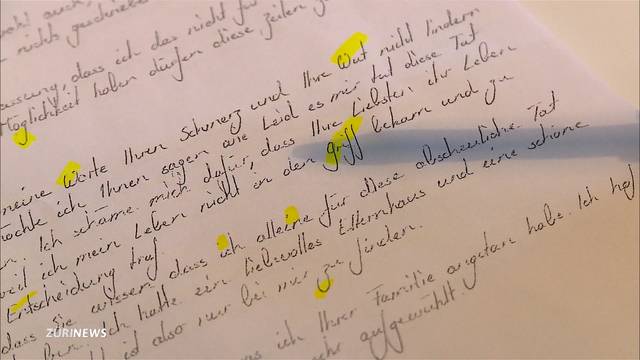 auch,
nichts geschrieben
dass ich das nicht für
Möglichkeit haben dürfen diese Zeilen z
meine Worte Ihren Schmerz und Ihre Wut nicht lindern
möchte ich Ihnen sagen wie Leid es mir tut diese Tat
n. Ich schäme mich dafür, dass Ihre Liebsten ihr Leben
weil ich mein Leben nicht in den griff bekam und zu
Entscheidung traf.
dass Sie wissen, dass ich alleine für diese abscheuliche Tat
Ich hatte ein liebevolles Elternhaus und eine schöne
ist also nur bei mir zu finden.
was ich Ihrer Familie angetan habe. Ich hof
aufgewühlt
ZÜRINEWS